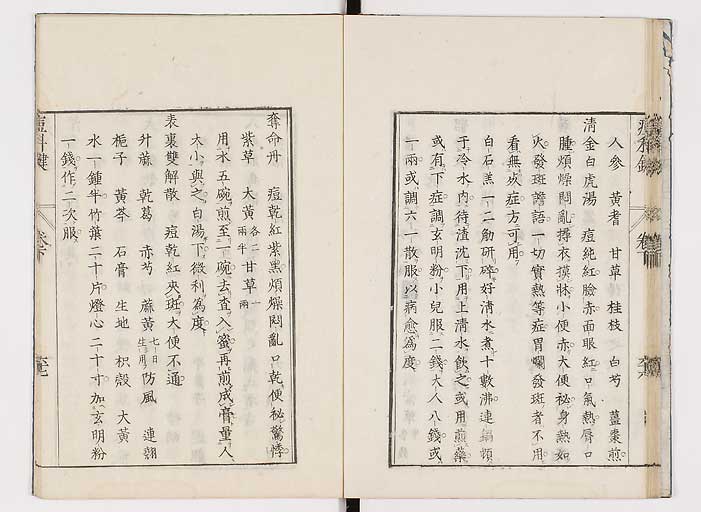 人參　黃耆　甘草　桂枝　白芍　薑棗煎
清金白虎湯　痘純紅臉赤面眼紅口氣熱唇口
腫煩燥悶亂撏衣摸牀小便赤大便秘身熱如
火發斑譫語一切實熱等症胃爛發斑者不用
看無灰症方可用
白石羔一二觔研碎好清水煮十數沸連鍋頓
于冷水内待渣沈下用上清水飲之或用煎藥
或有下症調玄明粉小兒服二錢大人八錢或
一兩或調六一散服以病愈爲度
奪命丹　痘乾紅紫黑煩燥悶亂口乾便秘驚悸
紫草　大黃各二兩半甘草一兩
用水五碗煎至一碗去査入蜜再煎成膏量人
大小與之白湯下微利爲度
表裏雙解散　痘乾紅夾斑大便不通
升蔴　乾葛　赤芍　蔴黃七日生用防風　連翹
梔子　黃芩　石膏　生地　枳殼　大黃
水一鍾半竹葉二十片燈心二十寸加玄明粉
一錢作二次服
痘科鍵
卷下